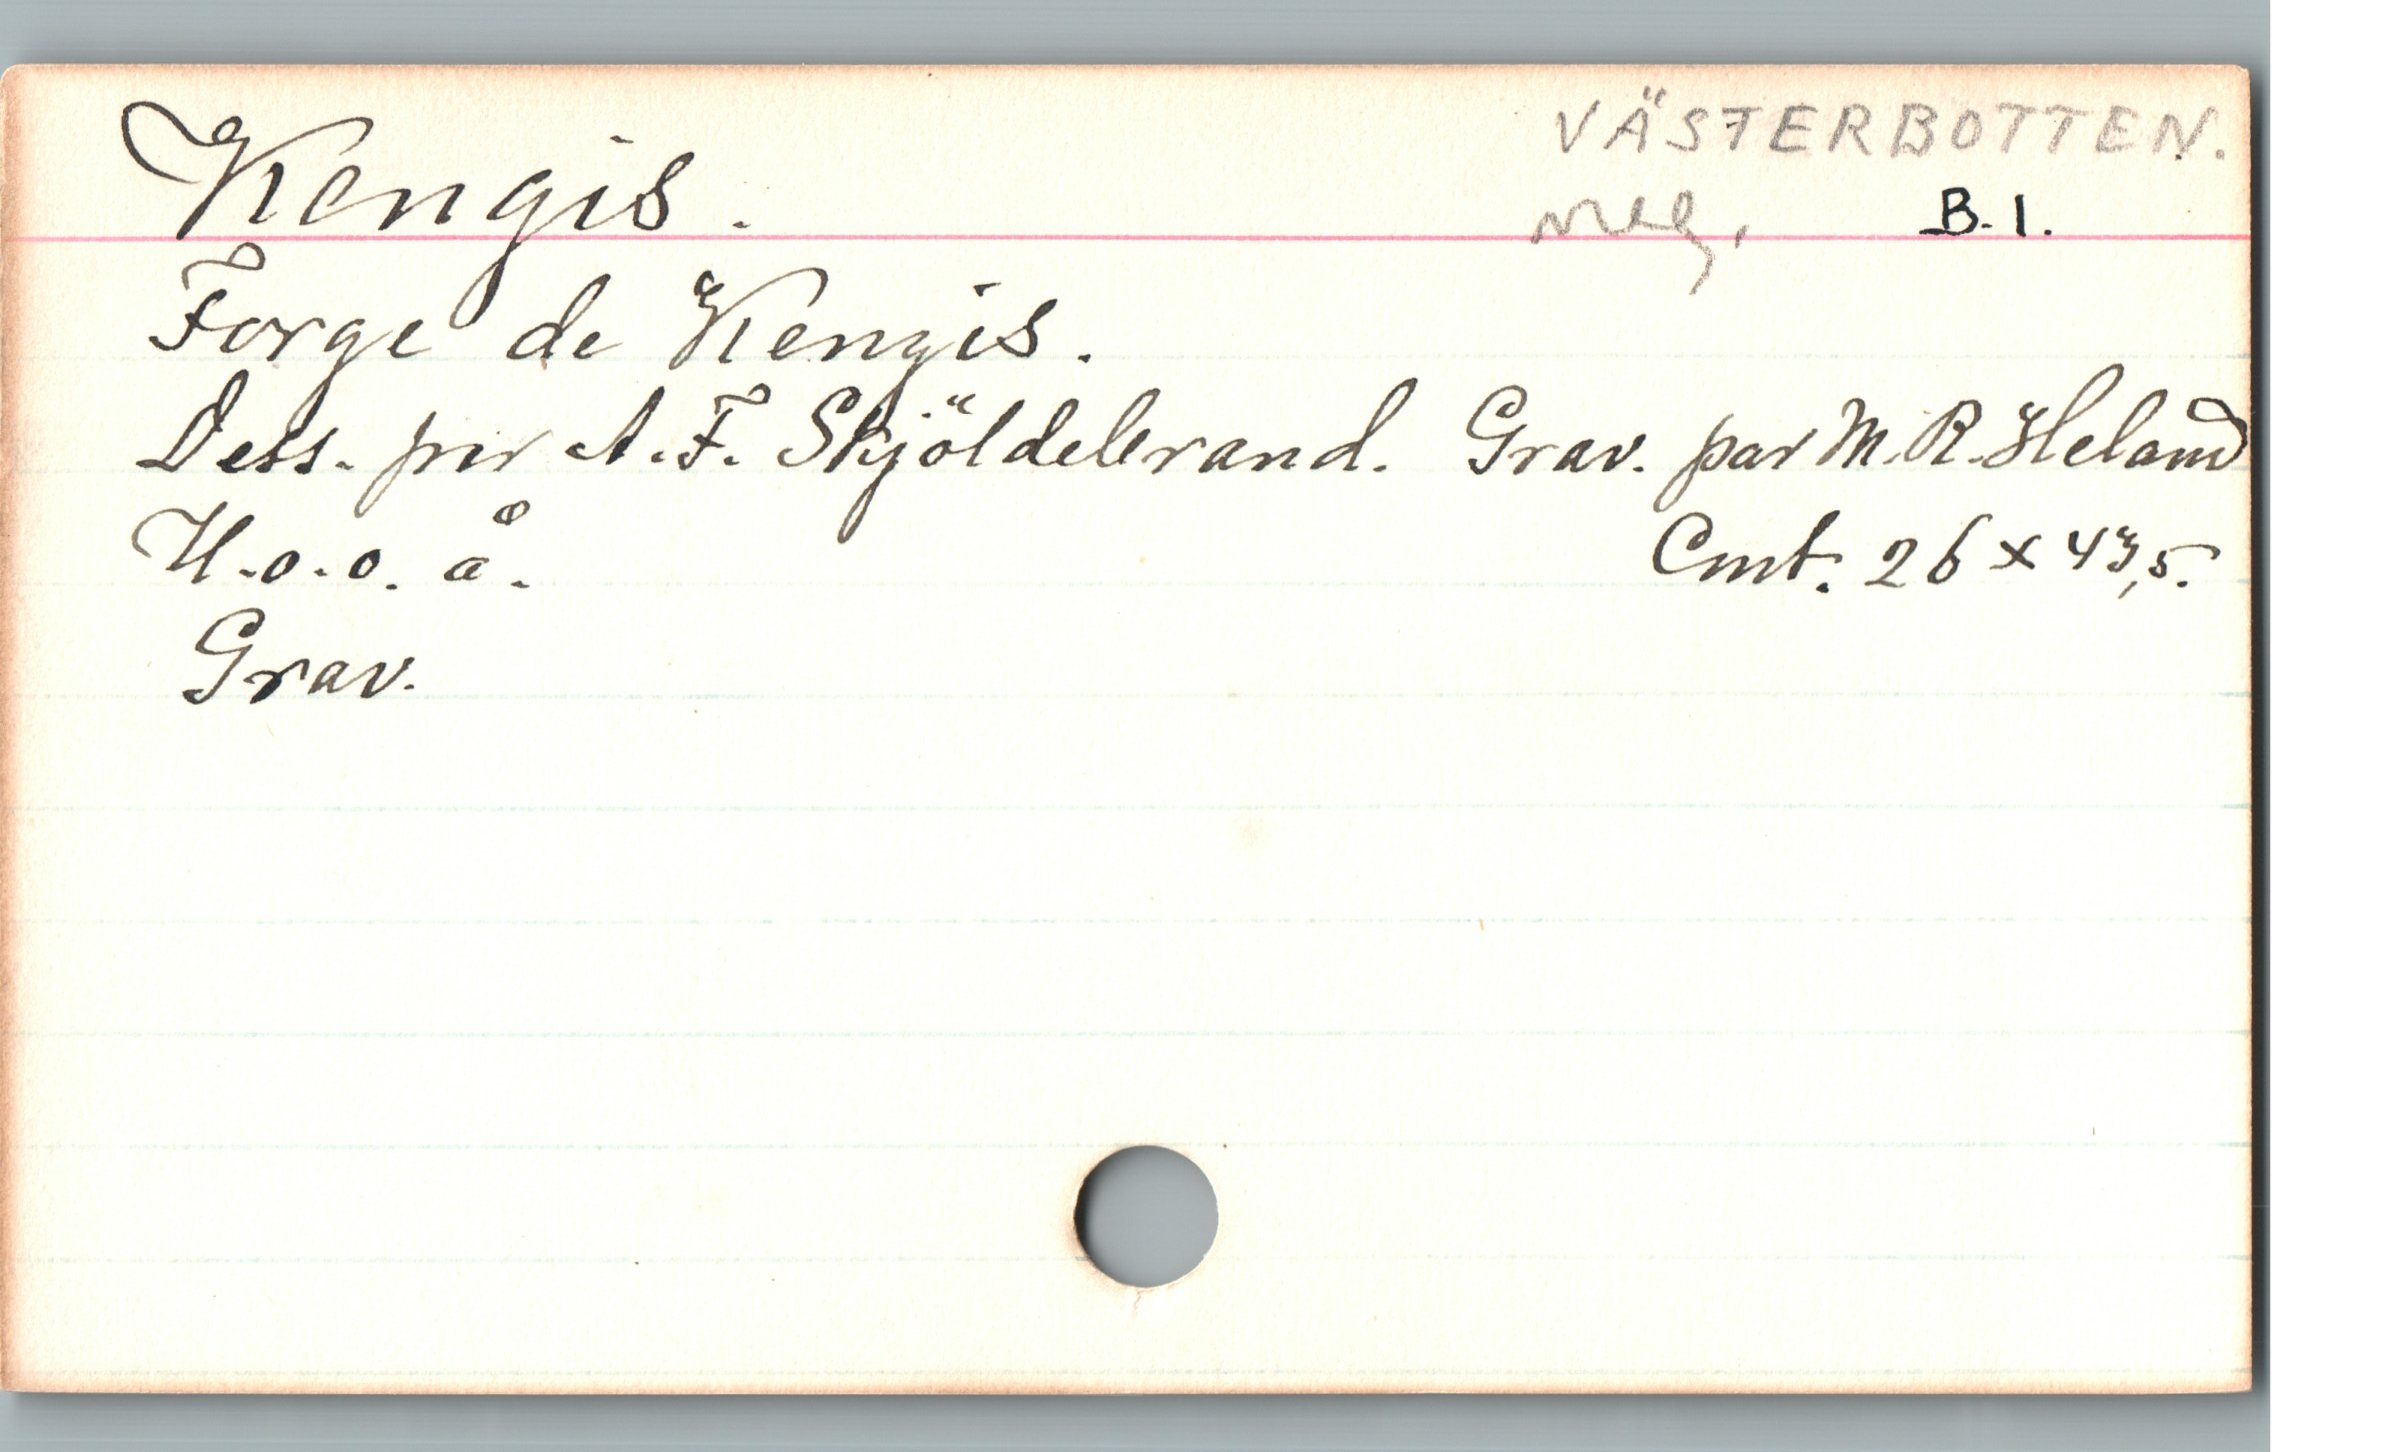 Kengis.
VÄSTERBOTTEN.
neg. B. 1.
Forge de Kengis.
Dess. par A. F. Skjöldebrand. Grav. par M. R. Heland
U. o. o. å. Cmt. 26 x 43,5.
Grav.